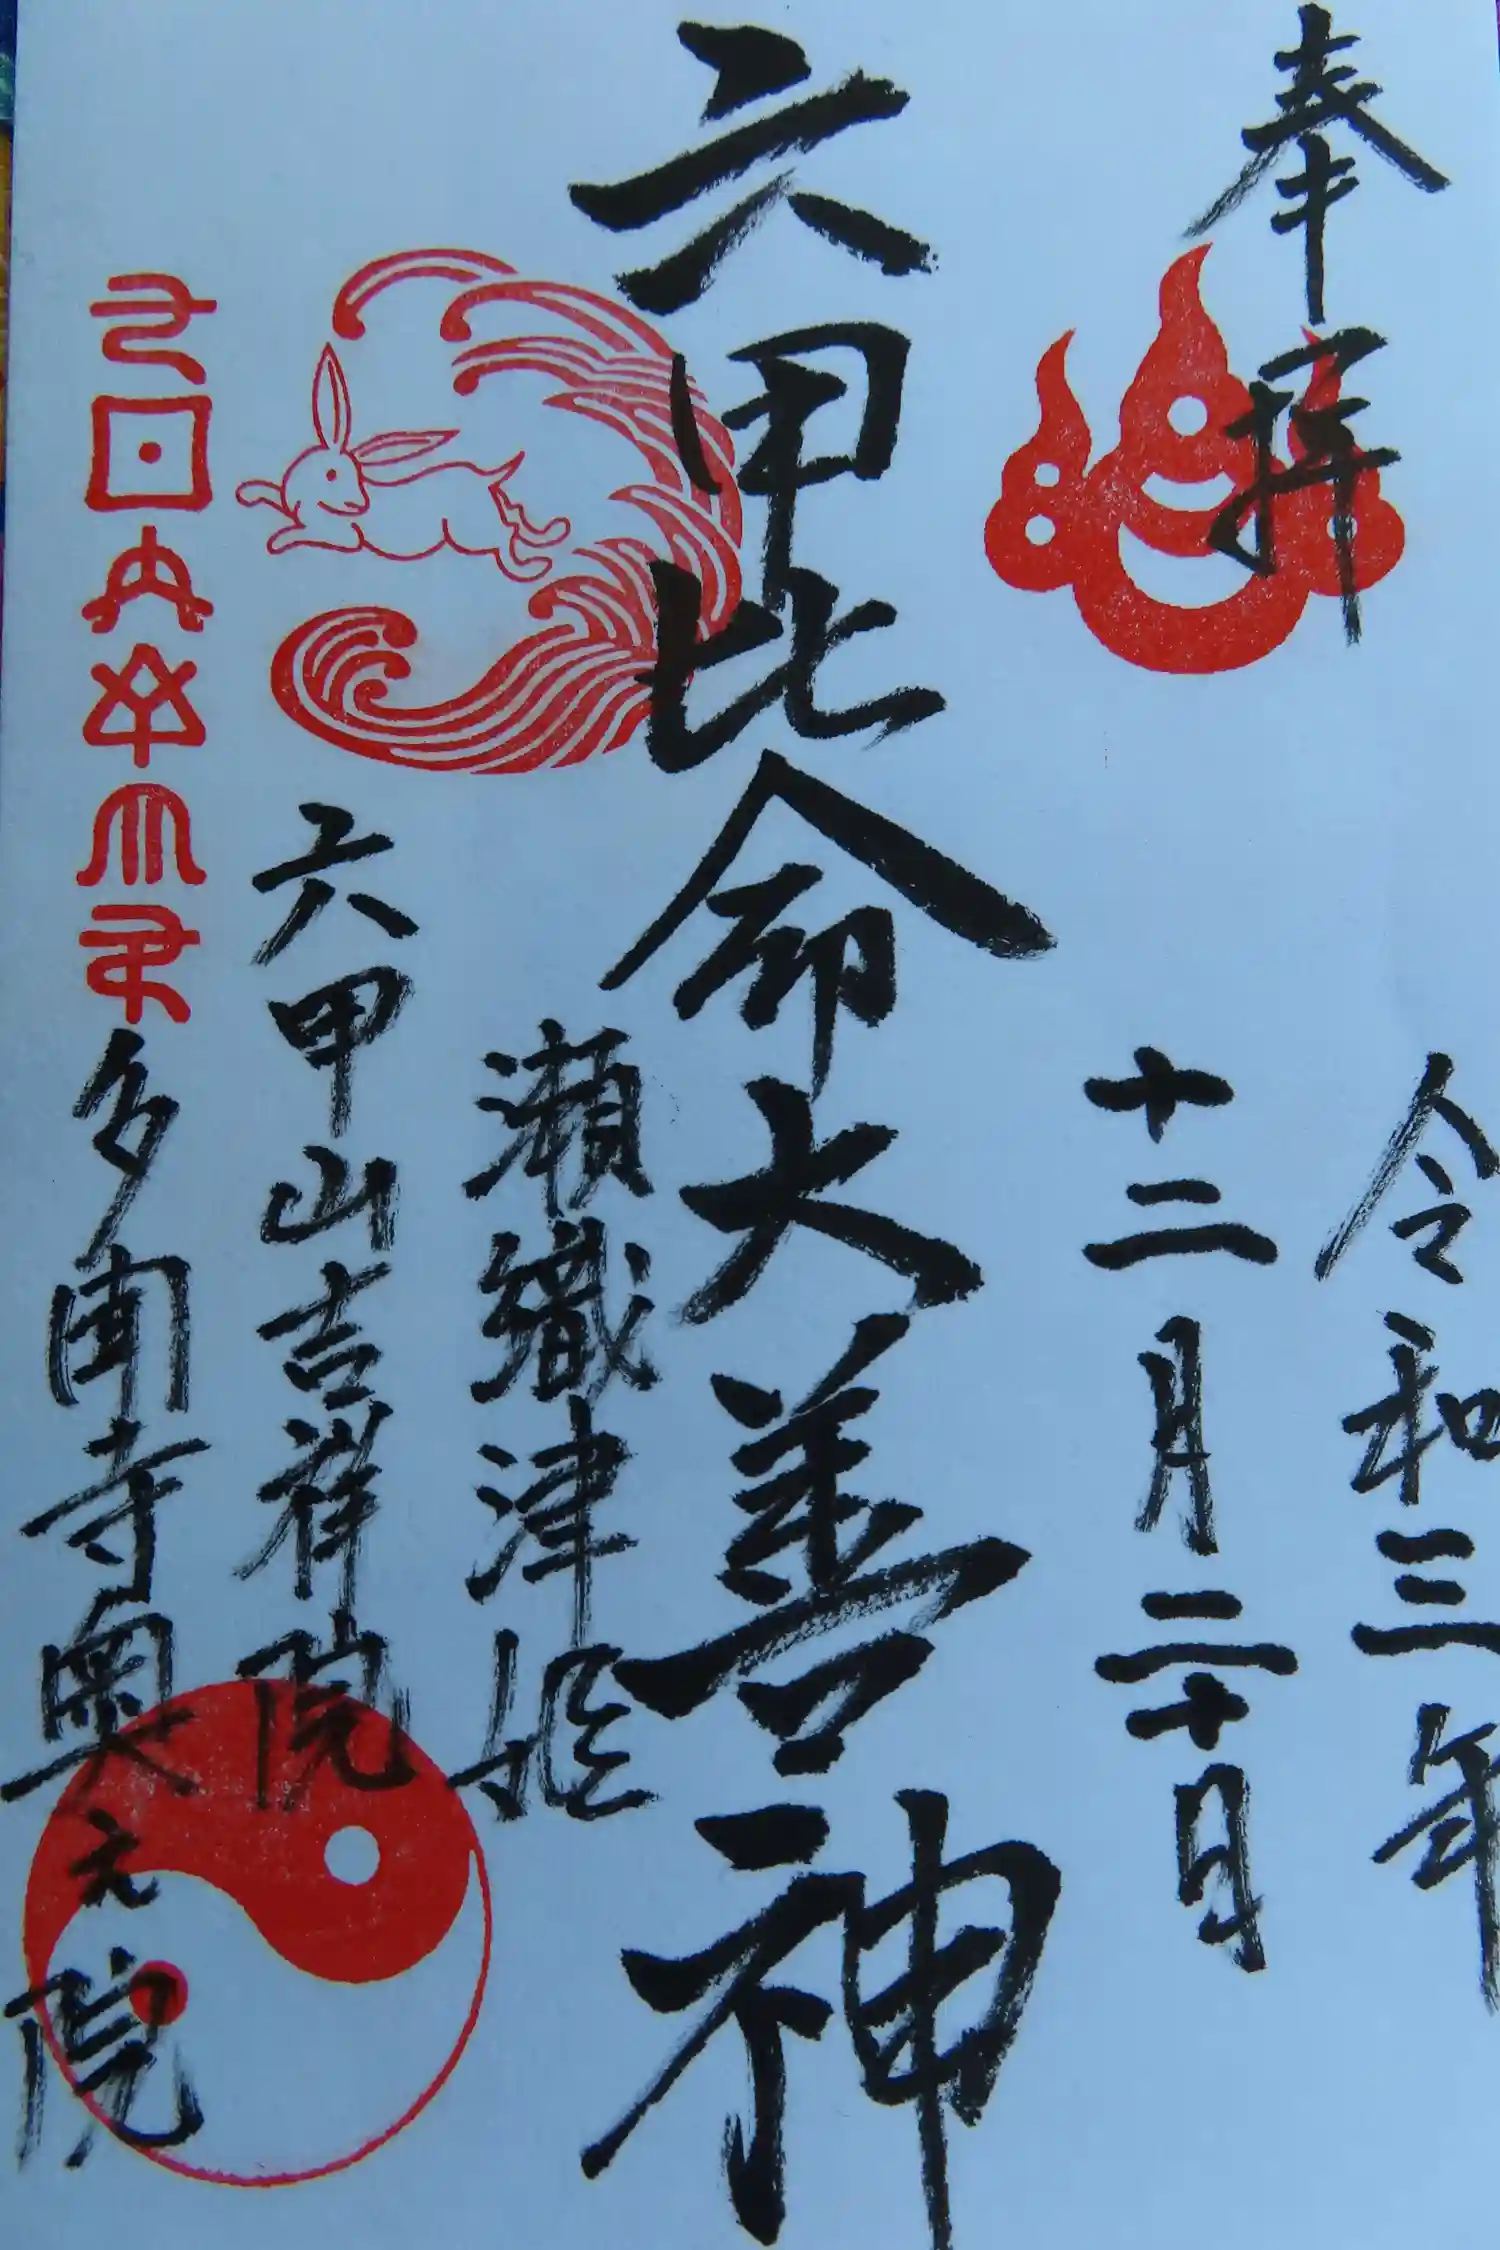 奉拝
令和三年
十二月二十日
六甲比命大善神
瀬織津姫
六甲山吉祥院
多聞寺奥之院